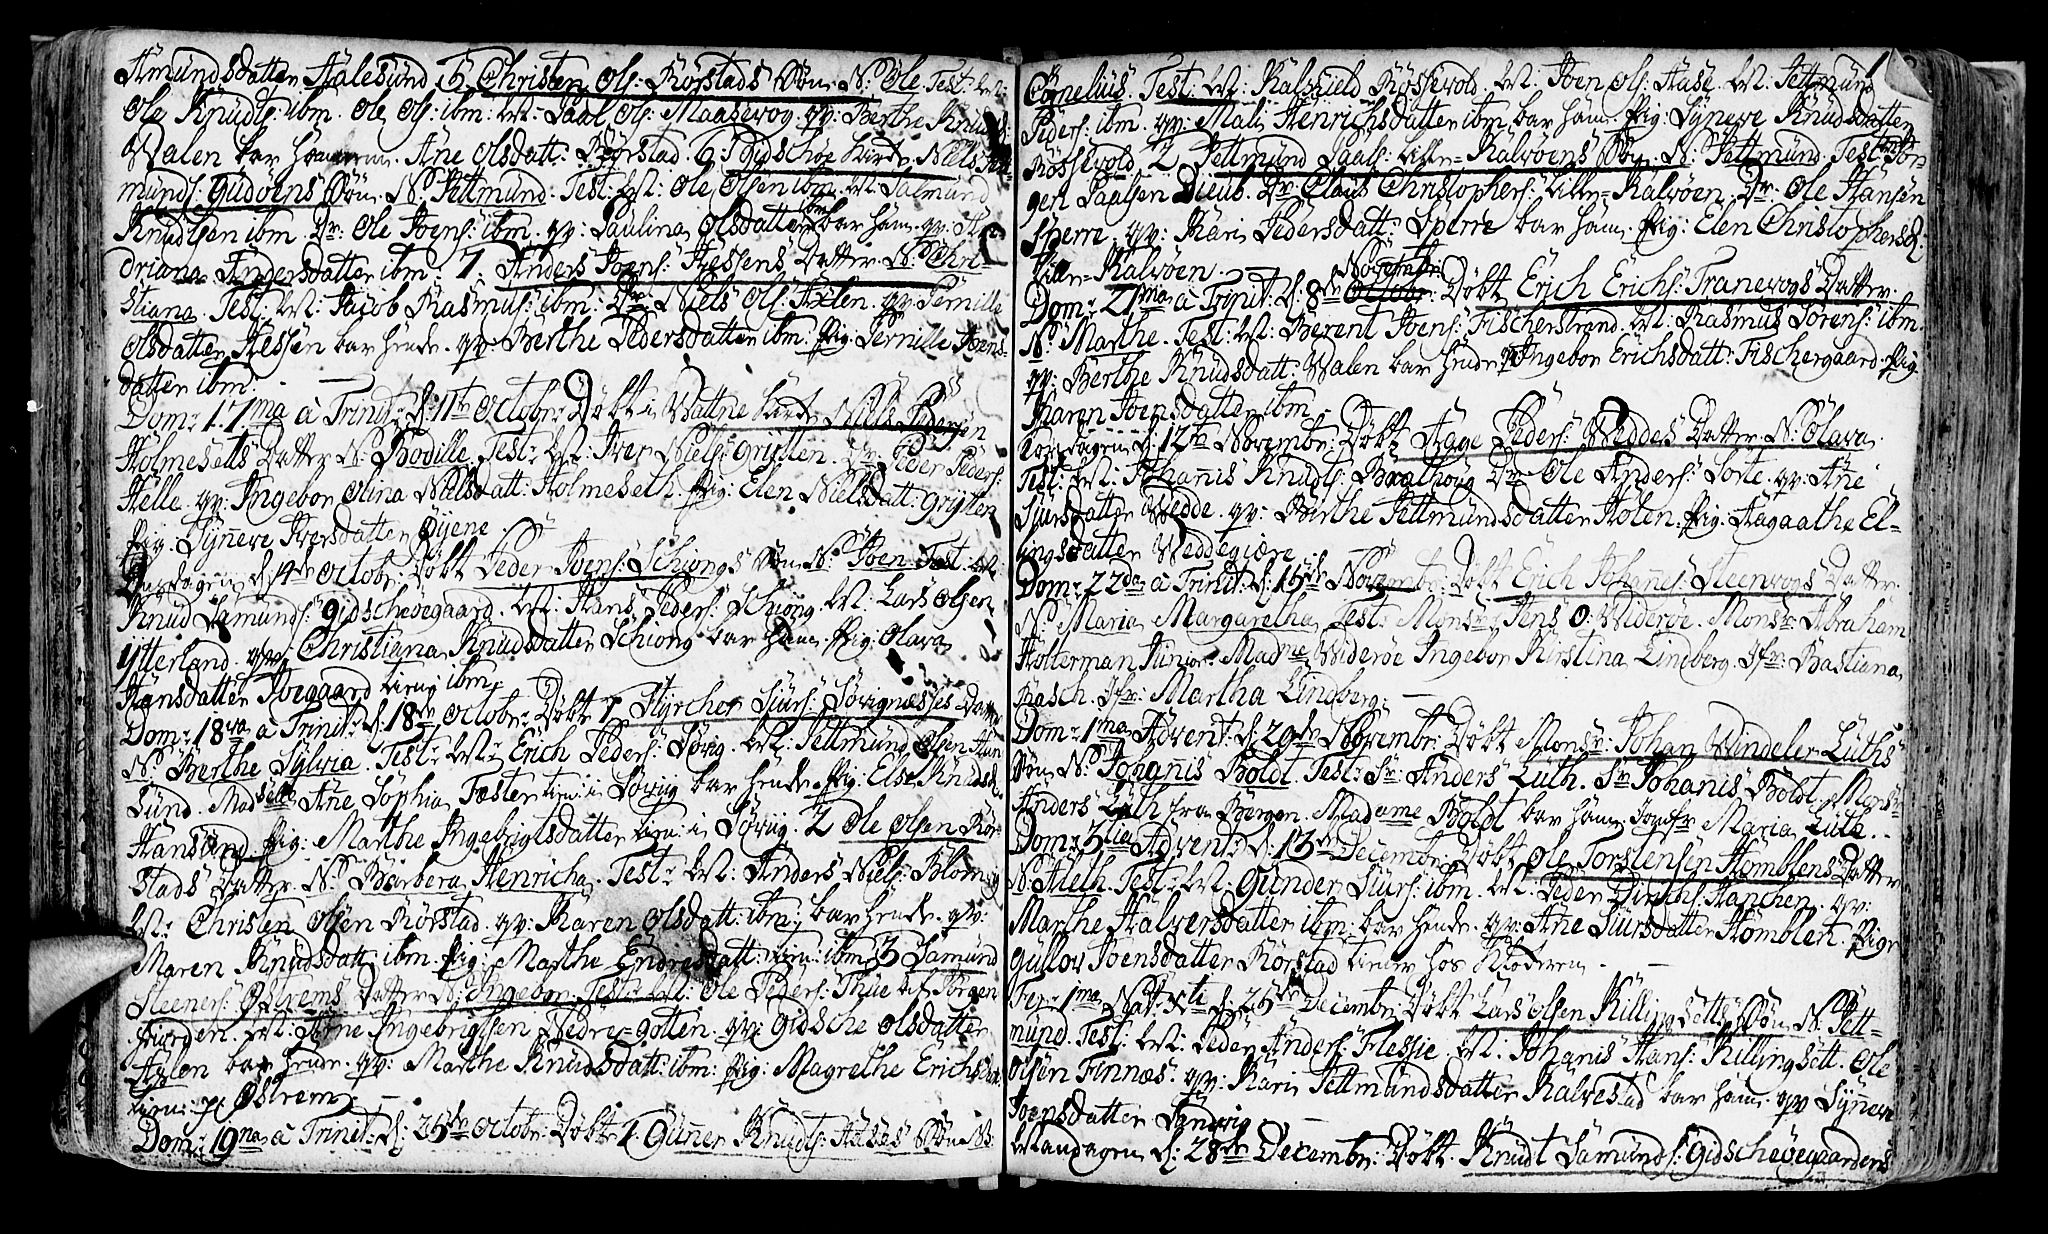 Amundsdatter Aalesund 5 Christen Ols: Rørstads Søn N: Ole. Test:
Ole Knuds: ibm. Ole Ols: ibm: Paal Ols: Maasevog. qv: Berthe Knuds:
Walen bar ham. Ane Olsdatt: Rørstad. 6 Gidschøe Niels Pett-
munds: Gudøens Søn N: Pettmund. Test: Ole Olsen ibm. Salmund
Knudsen ibm. Dr: Ole Joens: ibm. qv: Paulina Olsdatter ibm bar ham. qv: A-
driana Andersdatter ibm: 7: Anders Joens: Hessens Datter. N: Chri-
stiana. Test: Jacob Rasmus: ibm: Dr: Niels Ols: Axlen. qv: Pernille
Olsdatter Hessen bar hende. qv: Berthe Pedersdatter ibm. Pig: Pernille Joens-
datter ibm.
Dom: 17ma à Trinit: d: 11te Octobr: Døbt i Wattne Niels Pedersen
Holmesetts Datter N: Bodille. Test: Iver Niels: Grytten. Dr: Peder Peders:
Helle. qv: Ingebor Olina Nielsdatt: Holmeseth. Pig: Elen Nielsdatt: Grytten
Pig: Synneve Iversdatter Øyene.
d: 14de Octobr: Døbt Peder Joens: Schiongs Søn N: Joen. Test:
Knud Samunds: Gidschøegaard. Hans Peders: Schiong. Lars Olsen
Ytterland. qv: Christiana Knudsdatter Schiong bar ham. Pig: Olava
Hansdatter Hoegaard ibm.
Dom: 18va à Trinit: d: 18de Octobr: Døbt 1 Styrcher Siurs: Sørignæsses Datter
N: Berthe Sylvia. Test: Erich Peders: Sørig. Pettmund Olsen Han
Sund. Madselle Ane Sophia Fester i Sørig bar hende. Pig: Else Knudsd:
Hansund. Pig: Marthe Ingebrigtsdatter i Sørig. 2 Ole Olsen Rør-
stads Datter. N: Barbera Henricha. Test: Anders Niels: Blom
Christen Olsen Rørstad. qv: Karen Olsdatt: ibm: bar hende. qv:
Maren Knudsdatt: ibm. Pig: Marthe Endresdatt: ibm 3 Samund
Steeners: Østrems Datter N: Ingebor. Test: Ole Peders: Thue af Jørgen
fiorden. Arne Ingebrigtsen Nedre-Gotten. qv: Gidsche Olsdatter
Axlen bar hende. qv: Marthe Knudsdatt: ibm: Pig: Magrethe Erichsdatt
Østrem.
Dom: 19na à Trinit: d: 25de Octobr: Døbt 1 Gunner Knuds: Aases Søn N:
Cornelius. Test: Kalfield Røssevold. Joen Ols: Aase. Pettmund
Peders: ibm. qv: Mali Henrichsdatter ibm bar ham. Pig: Synneve Knudsdatter
Røssevold. 2 Pettmund Paals: Lille-Kalvøens Søn N: Pettmund. Test: Tor-
ger Paalsen Dieub. Dr: Claus Christophers: Lille-Kalvøen. Dr: Ole Hansen
Sperre. qv: Kari Pedersdatt: Sperre bar ham. Pig: Elen Christophersd:
Lille-Kalvøen.
Dom: 21ma à Trinit: d: 8de Novembr: Døbt Erich Erichs: Tranevogs Datter.
N: Marthe. Test: Berent Joens: Fischerstrand. Rasmus Sørens: ibm.
qv: Berthe Knudsdatt: Walen bar hende. Ingebor Erichsdatt: Fischergaard. Pig
Karen Joensdatter ibm.
d: 12te Novembr: Døbt Aage Peders: Weddes Datter N: Olava.
Test: Johannis Knuds: Bralhoug Dr: Ole Anders: Sorte. qv: Ane
Siursdatter Wedde. qv: Berthe Pettmundsdatter Holen. Pig: Aagaathe El-
ingsdatter Weddegiere.
Dom: 22da à Trinit: d: 15de Novembr: Døbt Erich Johanes: Steenvogs Datter.
N: Maria Margaretha. Test: Monsr: Jens O: Widerøe. Monsr: Abraham
Holterman Junior. Madme Widerøe Ingebor Kirstina Lindberg. Jfr: Bastiana
Rasch. Jfr: Martha Lindberg.
Dom: 1ma Advent: d: 29de Novembr: Døbt Monsr: Johan Windeler Lüths
Søn N: Johanis Boldt. Test: Sr: Anders Lüth. Sr Johanis Boldt Monsr:
Anders Lüth fra Bergen. Madame Boldt bar ham. Jomfr Maria Lüth.
Dom: 3tia Advent: d: 13de Decembr: Døbt Ole Torstensen Homblens Datter
N: Aleth. Test: Gunder Siurs: ibm. Peder Dirichs: Hanchen. qv:
Marthe Halversdatter ibm: bar hende. qv: Ane Siursdatter Homblen. Pige
Gullov Joensdatter Rørstad tiener hos Moderen.
Fer: 1ma Nat: Xti d: 25de Decembr: Døbt Lars Olsen Killingsetts Søn N: Pett-
mund. Test: Peder Anders: Flessie Johanis Hans: Killingsett. Ole
Olsen Finnæs. qv: Kari Pettmundsdatter Kalvestad bar ham. qv Synneve
Joensdatter Sandvig
Mandagen d: 28de Decembr: Døbt Knudt Samunds: Gidschøegaardens